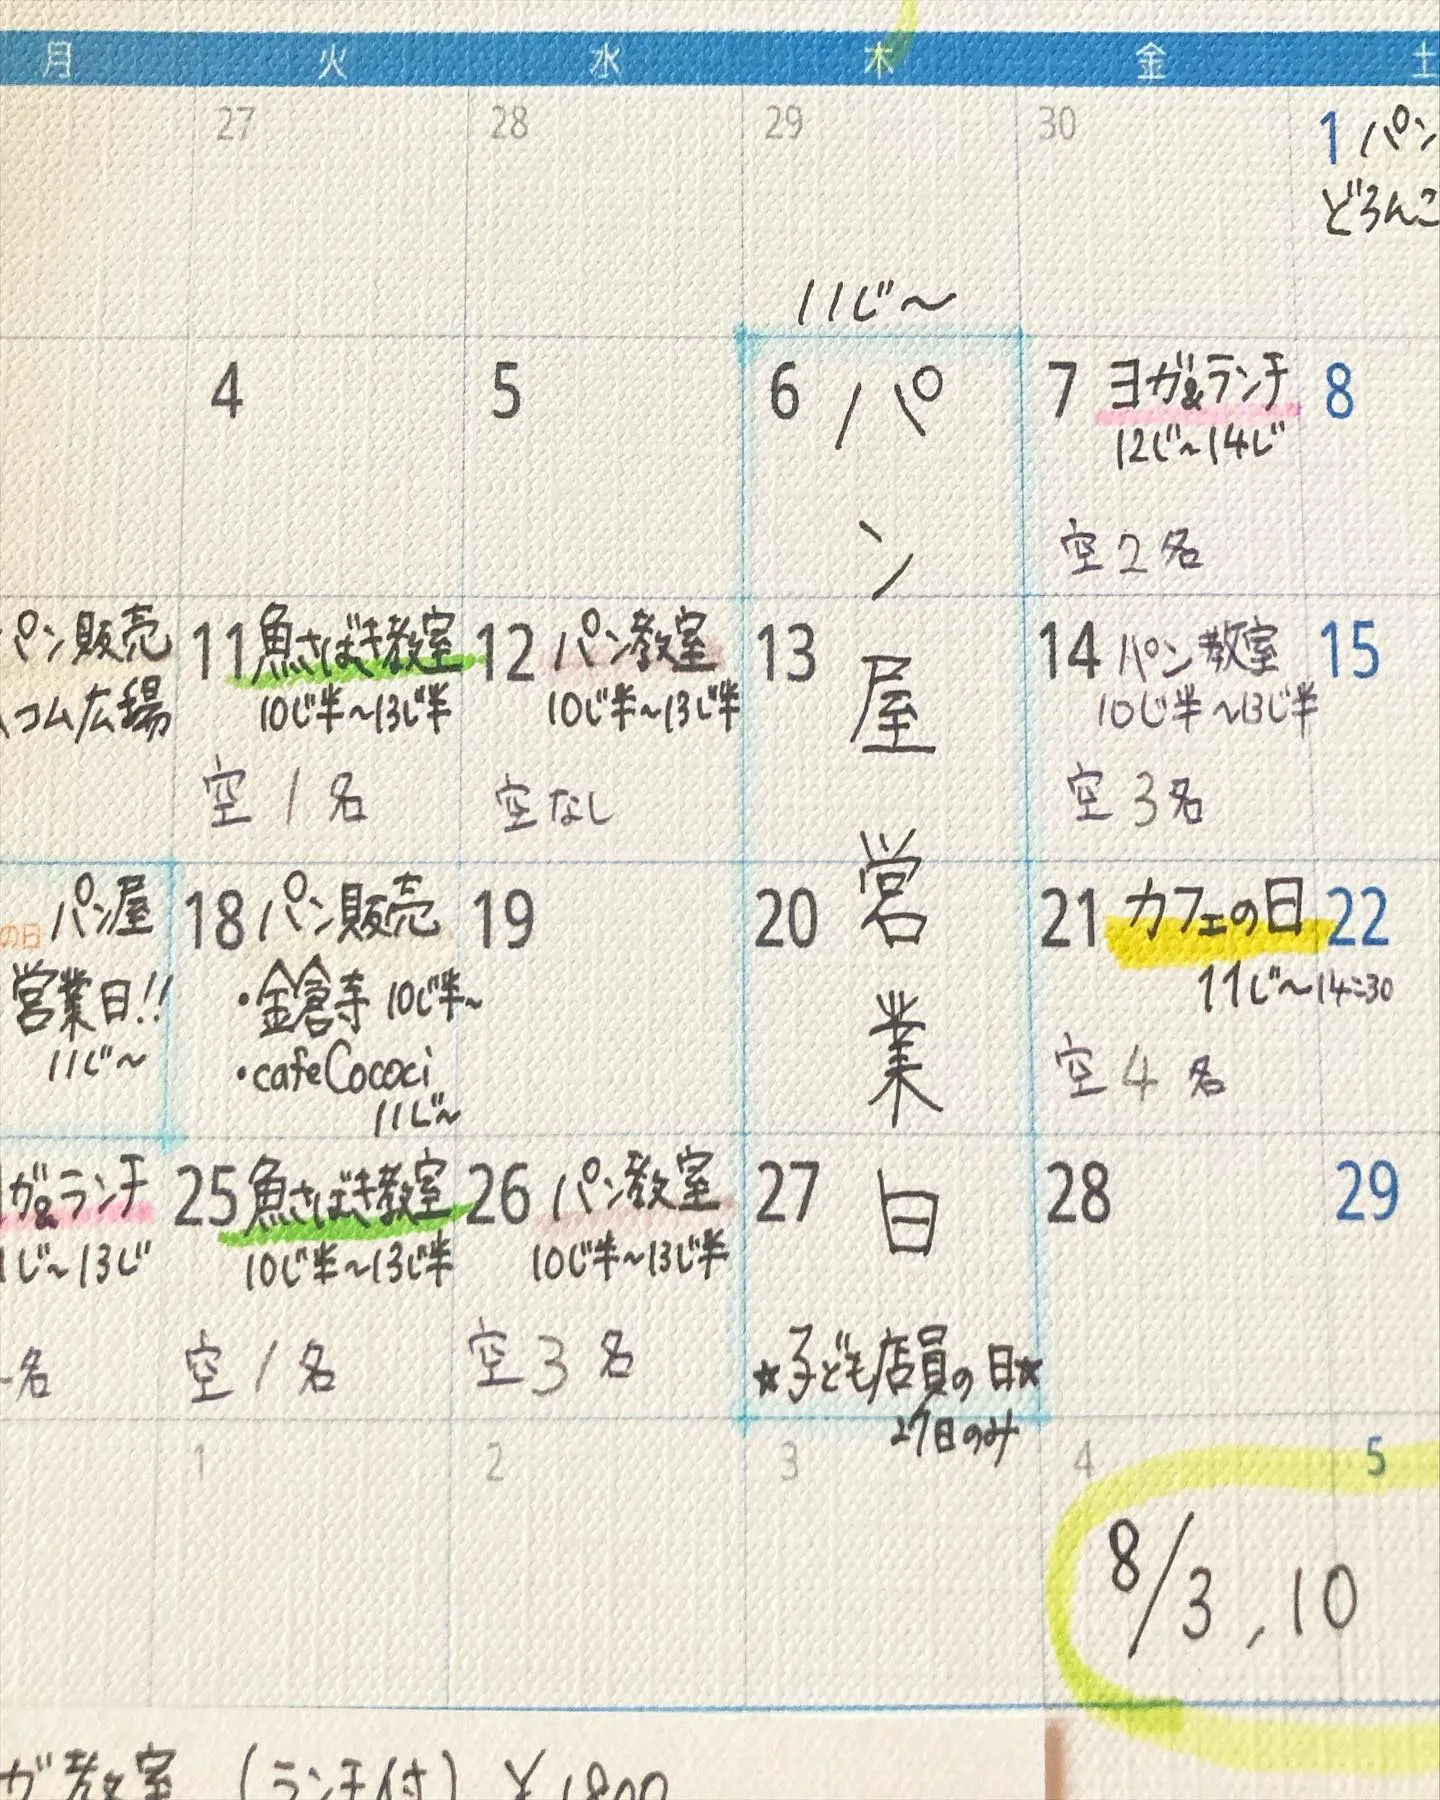 月 火 水 木 金 土
27 28 29 30 1 パン
どろんこ
11じ〜
4 5 6 7 ヨガ&ランチ 8
12じ〜14じ
空2名
パン屋営業日
パン販売 11 魚さばき教室 12 パン教室 13 14 パン教室 15
コム広場 10じ半〜13じ半 10じ半〜13じ半 10じ半〜13じ半
空1名 空なし 空3名
の日 パン屋 18 パン販売 19 20 21 カフェの日 22
営業日!! ・金倉寺 10じ半〜 11じ〜14:30
11じ〜 ・cafeCococi 空4名
11じ〜
ガ&ランチ 25 魚さばき教室 26 パン教室 27 28 29
1じ〜13じ 10じ半〜13じ半 10じ半〜13じ半
名 空1名 空3名 ★子ども店員の日★
27日のみ
1 2 3 4 5
8/3,10
ガ教室(ランチ付)¥1800